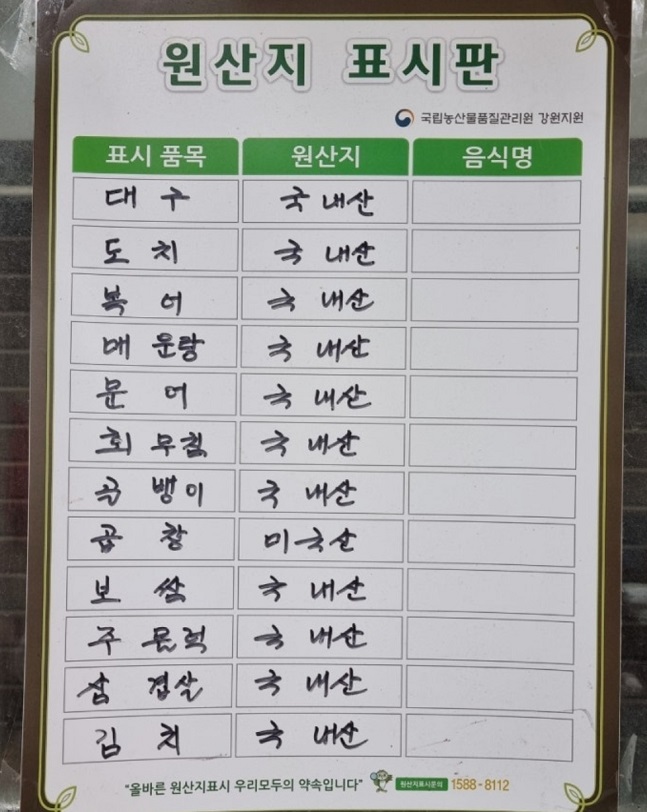 원산지 표시판
국립농산물품질관리원 강원지원
표시 품목 원산지 음식명
대구 국내산
도치 국내산
복어 국내산
매운탕 국내산
문어 국내산
회무침 국내산
골뱅이 국내산
곱창 미국산
보쌈 국내산
주물럭 국내산
삼겹살 국내산
김치 국내산
"올바른 원산지표시 우리모두의 약속입니다" 원산지표시문의 1588-8112